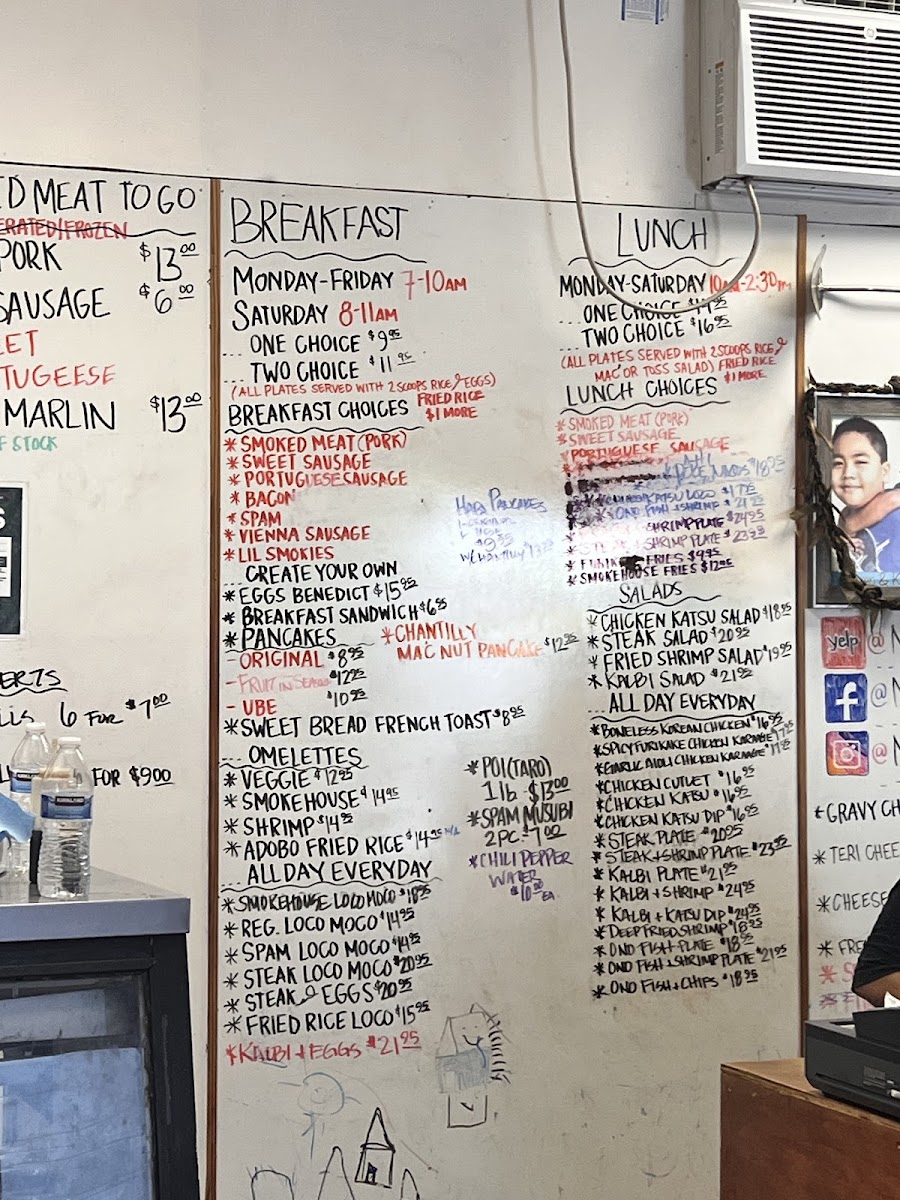 ED MEAT TO GO
ERATED/FROZEN
PORK $13.00
SAUSAGE $6.00
EET
TUGEESE
MARLIN $13.00
F STOCK
ERTS
LLS 6 FOR $7.00
FOR $9.00
BREAKFAST
MONDAY-FRIDAY 7-10AM
SATURDAY 8-11AM
... ONE CHOICE $9.95
... TWO CHOICE $11.95
(ALL PLATES SERVED WITH 2 SCOOPS RICE & EGGS)
BREAKFAST CHOICES FRIED RICE
$1 MORE
* SMOKED MEAT (PORK)
* SWEET SAUSAGE
* PORTUGUESE SAUSAGE
* BACON
* SPAM
* VIENNA SAUSAGE
* LIL SMOKIES
... CREATE YOUR OWN
* EGGS BENEDICT $15.95
* BREAKFAST SANDWICH $6.95
* PANCAKES
- ORIGINAL $8.95
- FRUIT IN SEASON $12.95
- UBE $10.95
* CHANTILLY
MAC NUT PANCAKE $12.95
* SWEET BREAD FRENCH TOAST $8.95
... OMELETTES
* VEGGIE $12.95
* SMOKEHOUSE $14.95
* SHRIMP $14.95
* ADOBO FRIED RICE $14.95
... ALL DAY EVERYDAY
* SMOKEHOUSE LOCO MOCO $18.95
* REG. LOCO MOCO $14.95
* SPAM LOCO MOCO $14.95
* STEAK LOCO MOCO $20.95
* STEAK & EGGS $20.95
* FRIED RICE LOCO $15.95
* KALBI + EGGS $21.95
HAPA PANCAKES
* POI (TARO)
1 lb. $13.00
* SPAM MUSUBI
2 PC. $7.00
* CHILI PEPPER
WATER
$10.00 EA.
LUNCH
MONDAY-SATURDAY 10AM-2:30PM
... ONE CHOICE $14.95
... TWO CHOICE $16.95
(ALL PLATES SERVED WITH 2 SCOOPS RICE &
MAC OR TOSS SALAD) FRIED RICE
$1 MORE
LUNCH CHOICES
* SMOKED MEAT (PORK)
* SWEET SAUSAGE
* PORTUGUESE SAUSAGE
AHI
POKE NACHOS $18.95
KATSU LOCO $17.95
ONO FISH + SHRIMP $21.95
SHRIMP PLATE $24.95
SHRIMP PLATE $23.95
FRIES $9.95
* SMOKEHOUSE FRIES $12.95
SALADS
* CHICKEN KATSU SALAD $18.95
* STEAK SALAD $20.95
* FRIED SHRIMP SALAD $19.95
* KALBI SALAD $21.95
... ALL DAY EVERYDAY
* BONELESS KOREAN CHICKEN $16.95
* SPICY FURIKAKE CHICKEN KARAAGE $17.95
* GARLIC AIOLI CHICKEN KARAAGE $17.95
* CHICKEN CUTLET $16.95
* CHICKEN KATSU $16.95
* CHICKEN KATSU DIP $16.95
* STEAK PLATE $20.95
* STEAK + SHRIMP PLATE $23.95
* KALBI PLATE $21.95
* KALBI + SHRIMP $24.95
* KALBI + KATSU DIP $24.95
* DEEP FRIED SHRIMP $18.95
* ONO FISH PLATE $18.95
* ONO FISH + SHRIMP PLATE $21.95
* ONO FISH + CHIPS $18.95
yelp @
f @
@
* GRAVY CH
* TERI CHEE
* CHEESE
* FRE